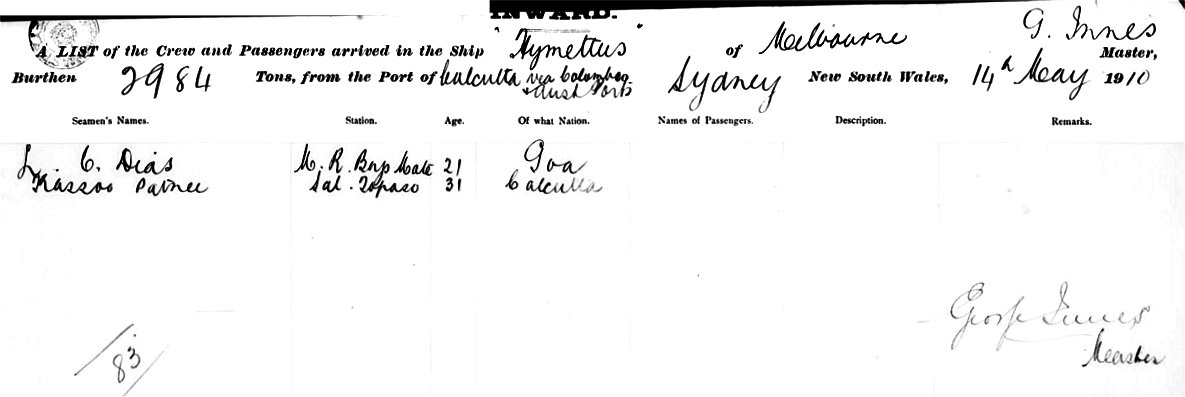 INWARD.
A LIST of the Crew and Passengers arrived in the Ship "Hymettus" of Melbourne G. Innes Master,
Burthen 2984 Tons, from the Port of Calcutta via Colombo & Aust Ports Sydney New South Wales, 14th May 1910
Seamen's Names. Station. Age. Of what Nation. Names of Passengers. Description. Remarks.
L. C. Dias M. R. Boys Mate 21 Goa
Kassoo Sal. Topaso 31 Calcutta
George Innes
Master
83